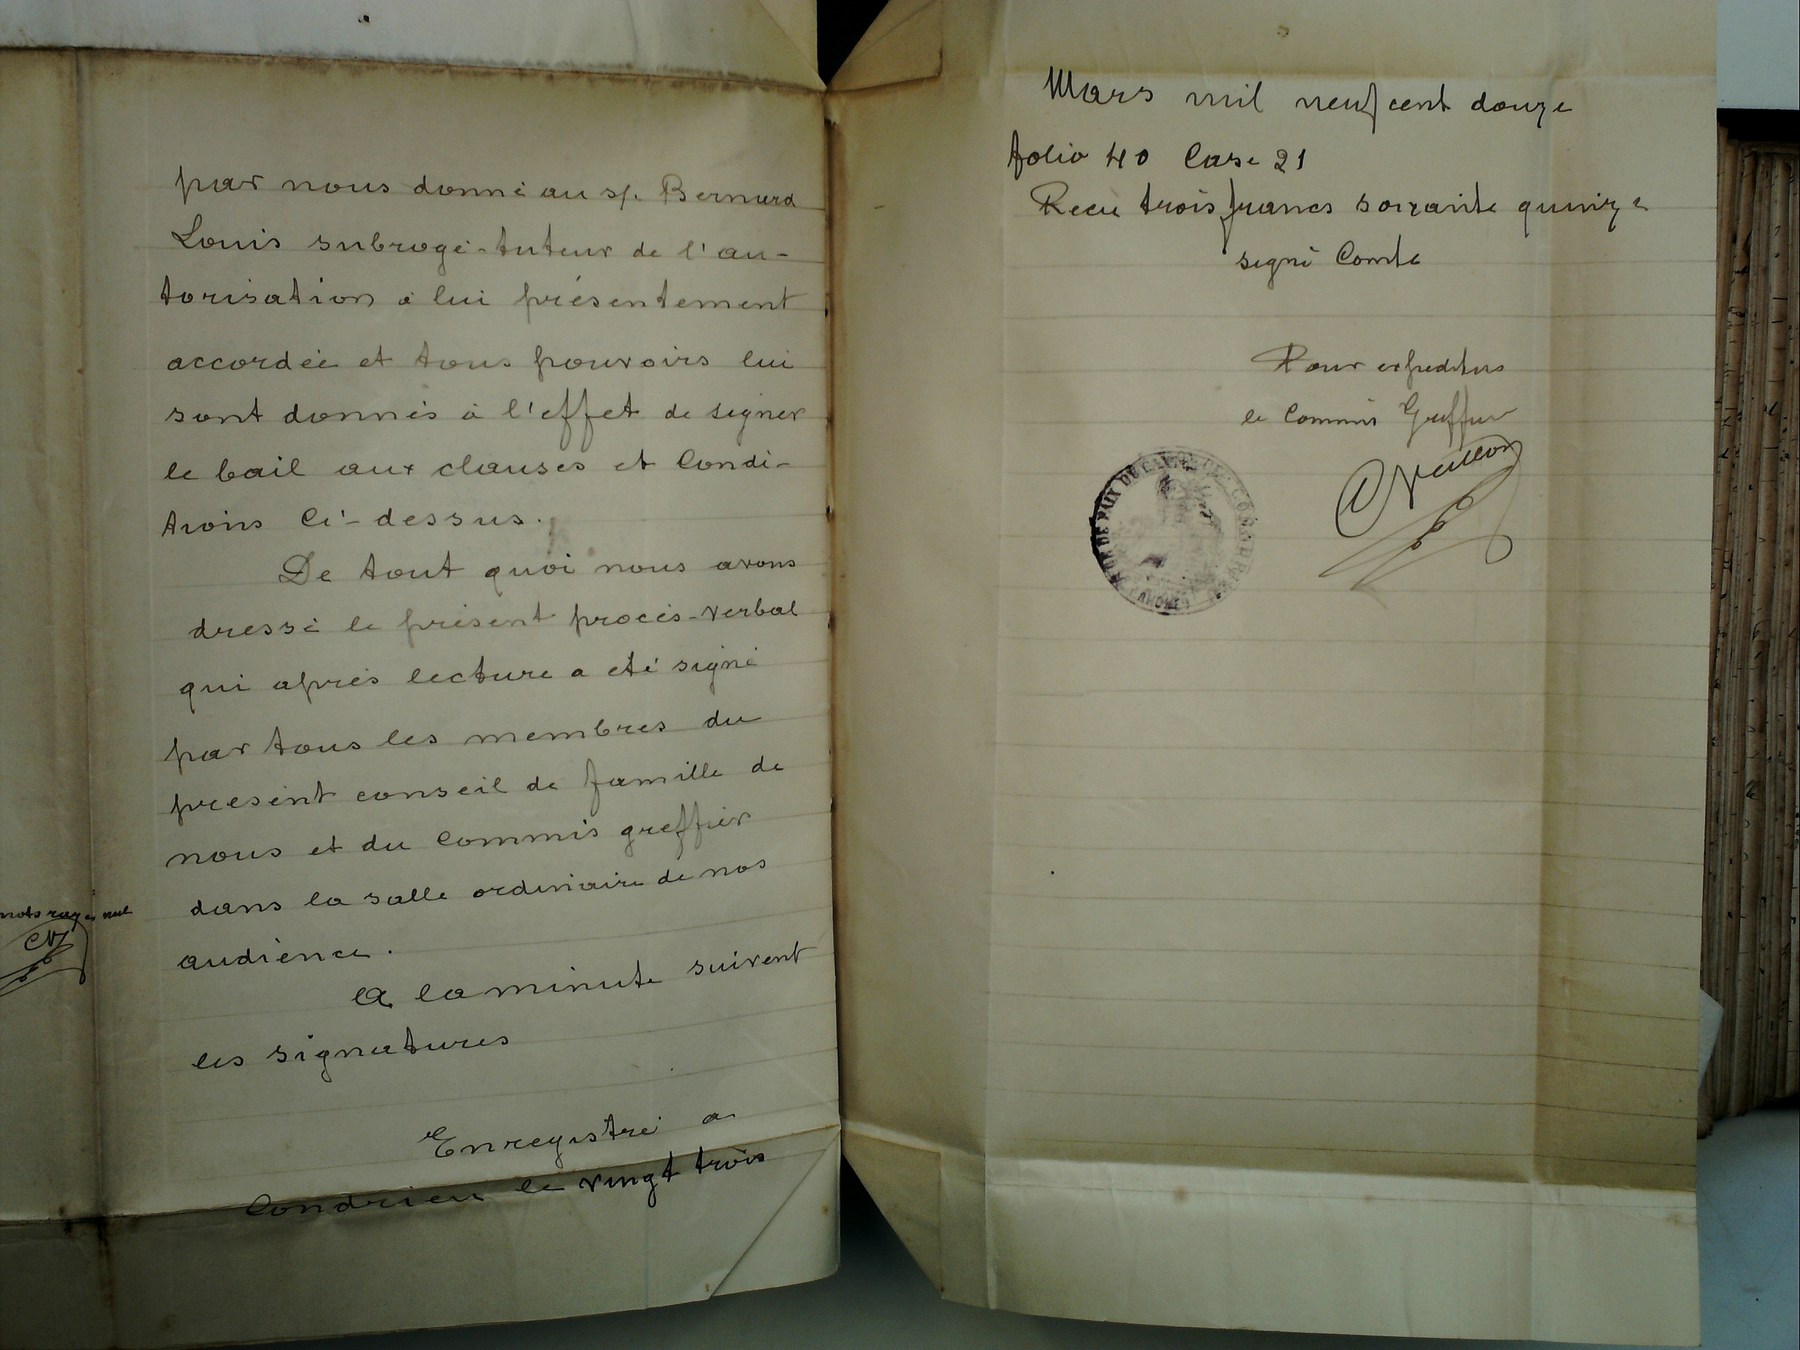 par nous donné au sr. Bernard
Louis subrogé-tuteur de l'au-
torisation à lui présentement
accordée et tous pouvoirs lui
sont donnés à l'effet de signer
le bail aux clauses et Condi-
tions Ci-dessus.
De tout quoi nous avons
dressé le présent procès-verbal
qui après lecture a été signé
par tous les membres du
présent conseil de famille de
nous et du Commis greffier
dans la salle ordinaire de nos
audience.
mots rayés nul
A la minute suivent
les signatures
Enregistré a
Condrieu le vingt trois
Mars mil neuf cent douze
folio 40 Case 21
Recu trois francs soixante quinze
signé Comte
Pour expedition
le Commis Greffier
DE PAIX DU CANTON DE CONDRIEU